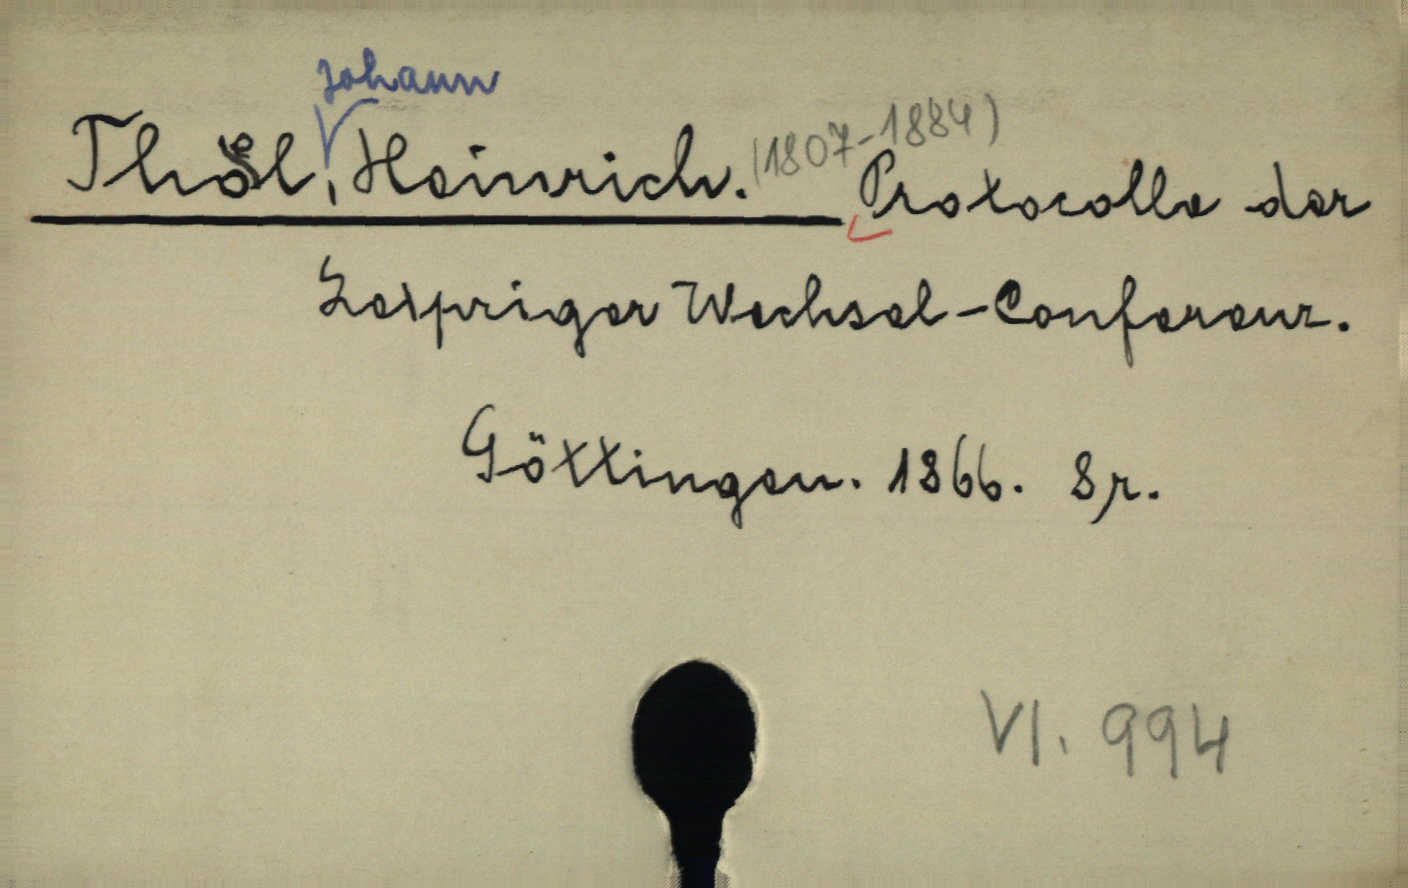 Johann
Thoel, Heinrich. (1807-1884) Protocolle der
Leipziger Wechsel-Conferenz.
Göttingen. 1866. 8r.
VI. 994